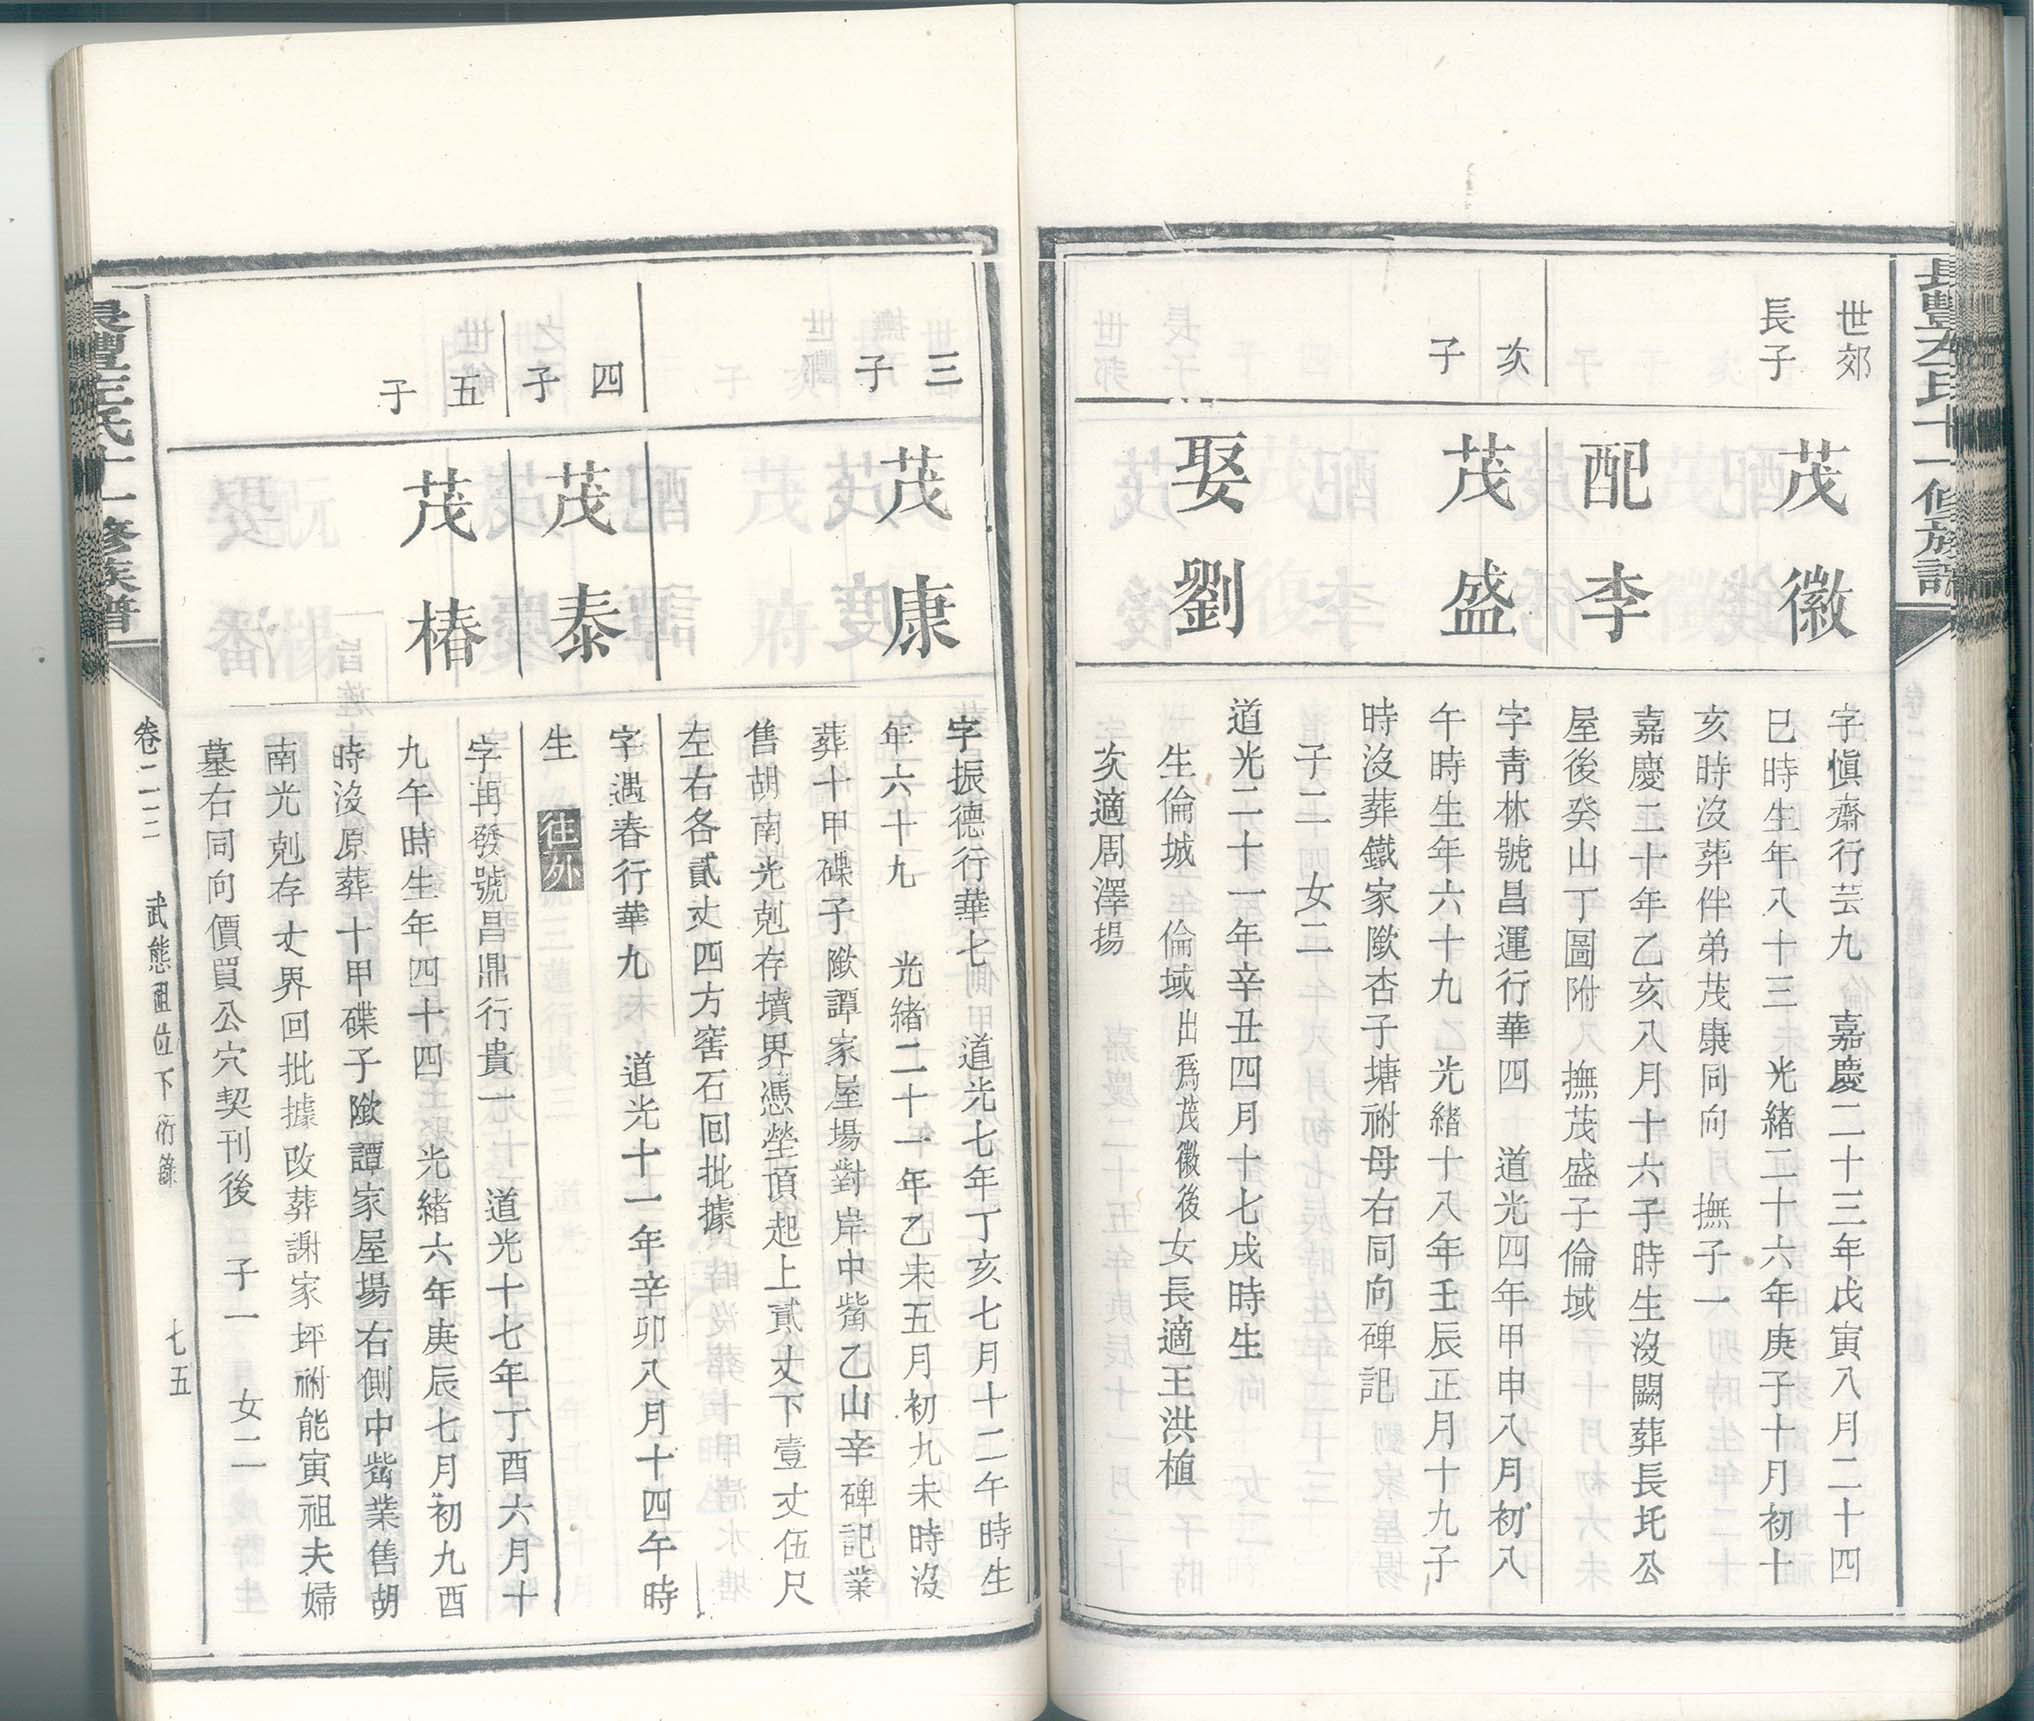 世郊
長子
茂徽
字愼齋行芸九 嘉慶二十三年戊寅八月二十四
巳時生年八十三 光緒二十六年庚子十月初十
亥時沒葬伴弟茂康同向 撫子一
配李
嘉慶二十年乙亥八月十六子時生沒闕葬長圫公
屋後癸山丁圖附 撫茂盛子倫域
次子
茂盛
字青林號昌運行華四 道光四年甲申八月初八
午時生年六十九 光緒十八年壬辰正月十九子
時沒葬鐵家歘杏子塘祔母右同向碑記
子二 女二
娶劉
道光二十一年辛丑四月十七戌時生
生倫城 倫域出爲茂徽後女長適王洪植
次適周澤揚
三子
茂康
字振德行華七 道光七年丁亥七月十二午時生
年六十九 光緒二十一年乙未五月初九未時沒
葬十甲磜子歘譚家屋場對岸中觜乙山辛碑記業
售胡南光剋存墳界憑塋頂起上貳丈下壹丈伍尺
左右各貳丈四方窖石回批據
四子
茂泰
字遇春行華九 道光十一年辛卯八月十四午時
生 往外
五子
茂椿
字再發號昌鼎行貴一 道光十七年丁酉六月十
九午時生年四十四 光緒六年庚辰七月初九酉
時沒原葬十甲磜子歘譚家屋場右側中觜業售胡
南光剋存丈界回批據改葬謝家坪祔能寅祖夫婦
墓右同向價買公穴契刊後 子一 女二
卷二三 武態祖位下衍錄 七五